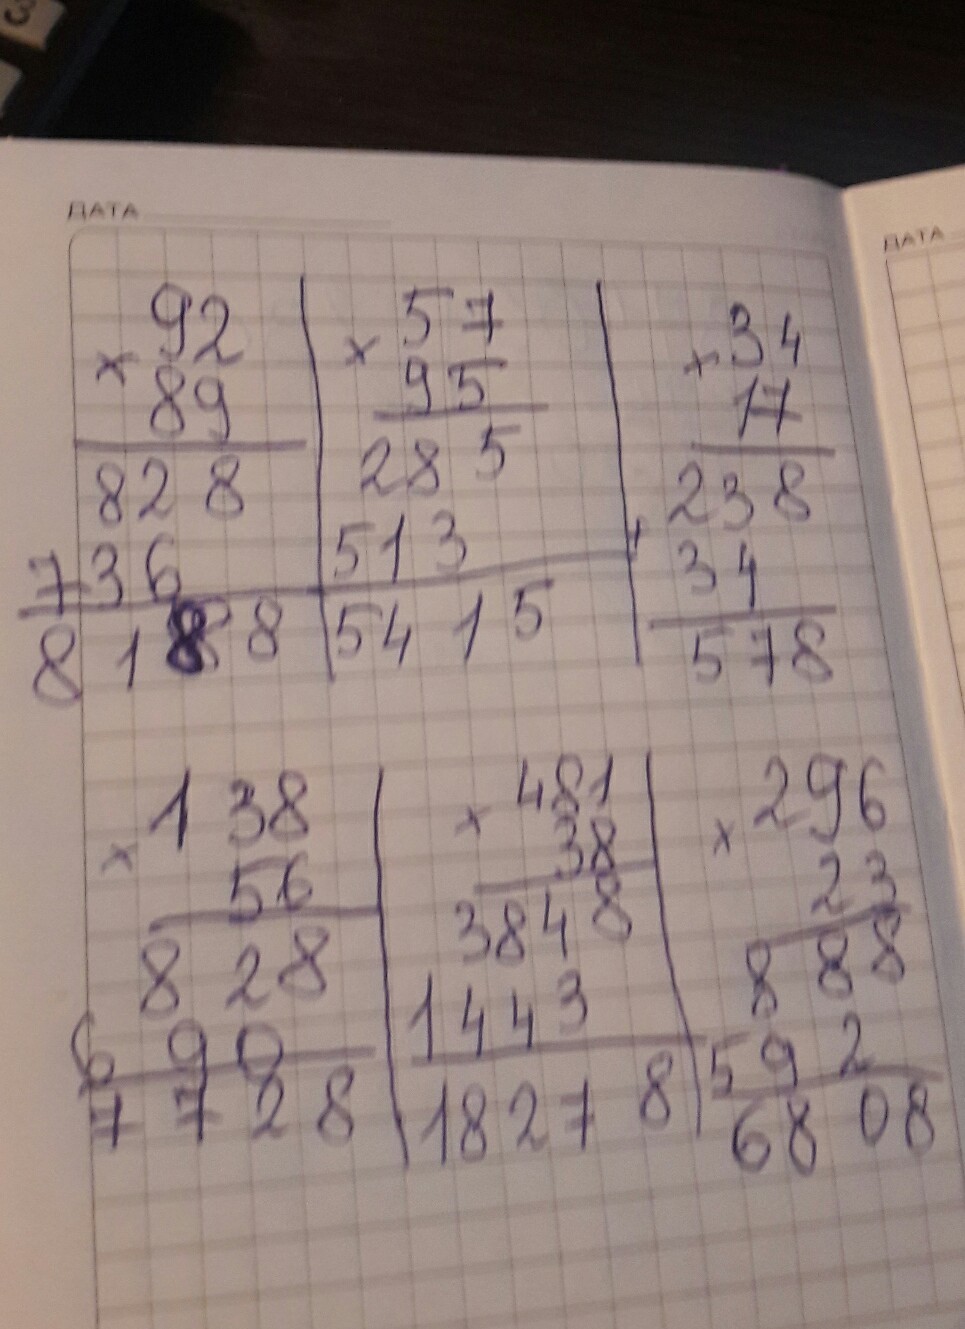 ДАТА
ДАТА
92
× 89
828
736
8188
57
× 95
285
513
5415
34
× 17
238
+ 34
578
138
× 56
828
690
7728
481
× 38
3848
1443
18278
296
× 23
888
592
6808